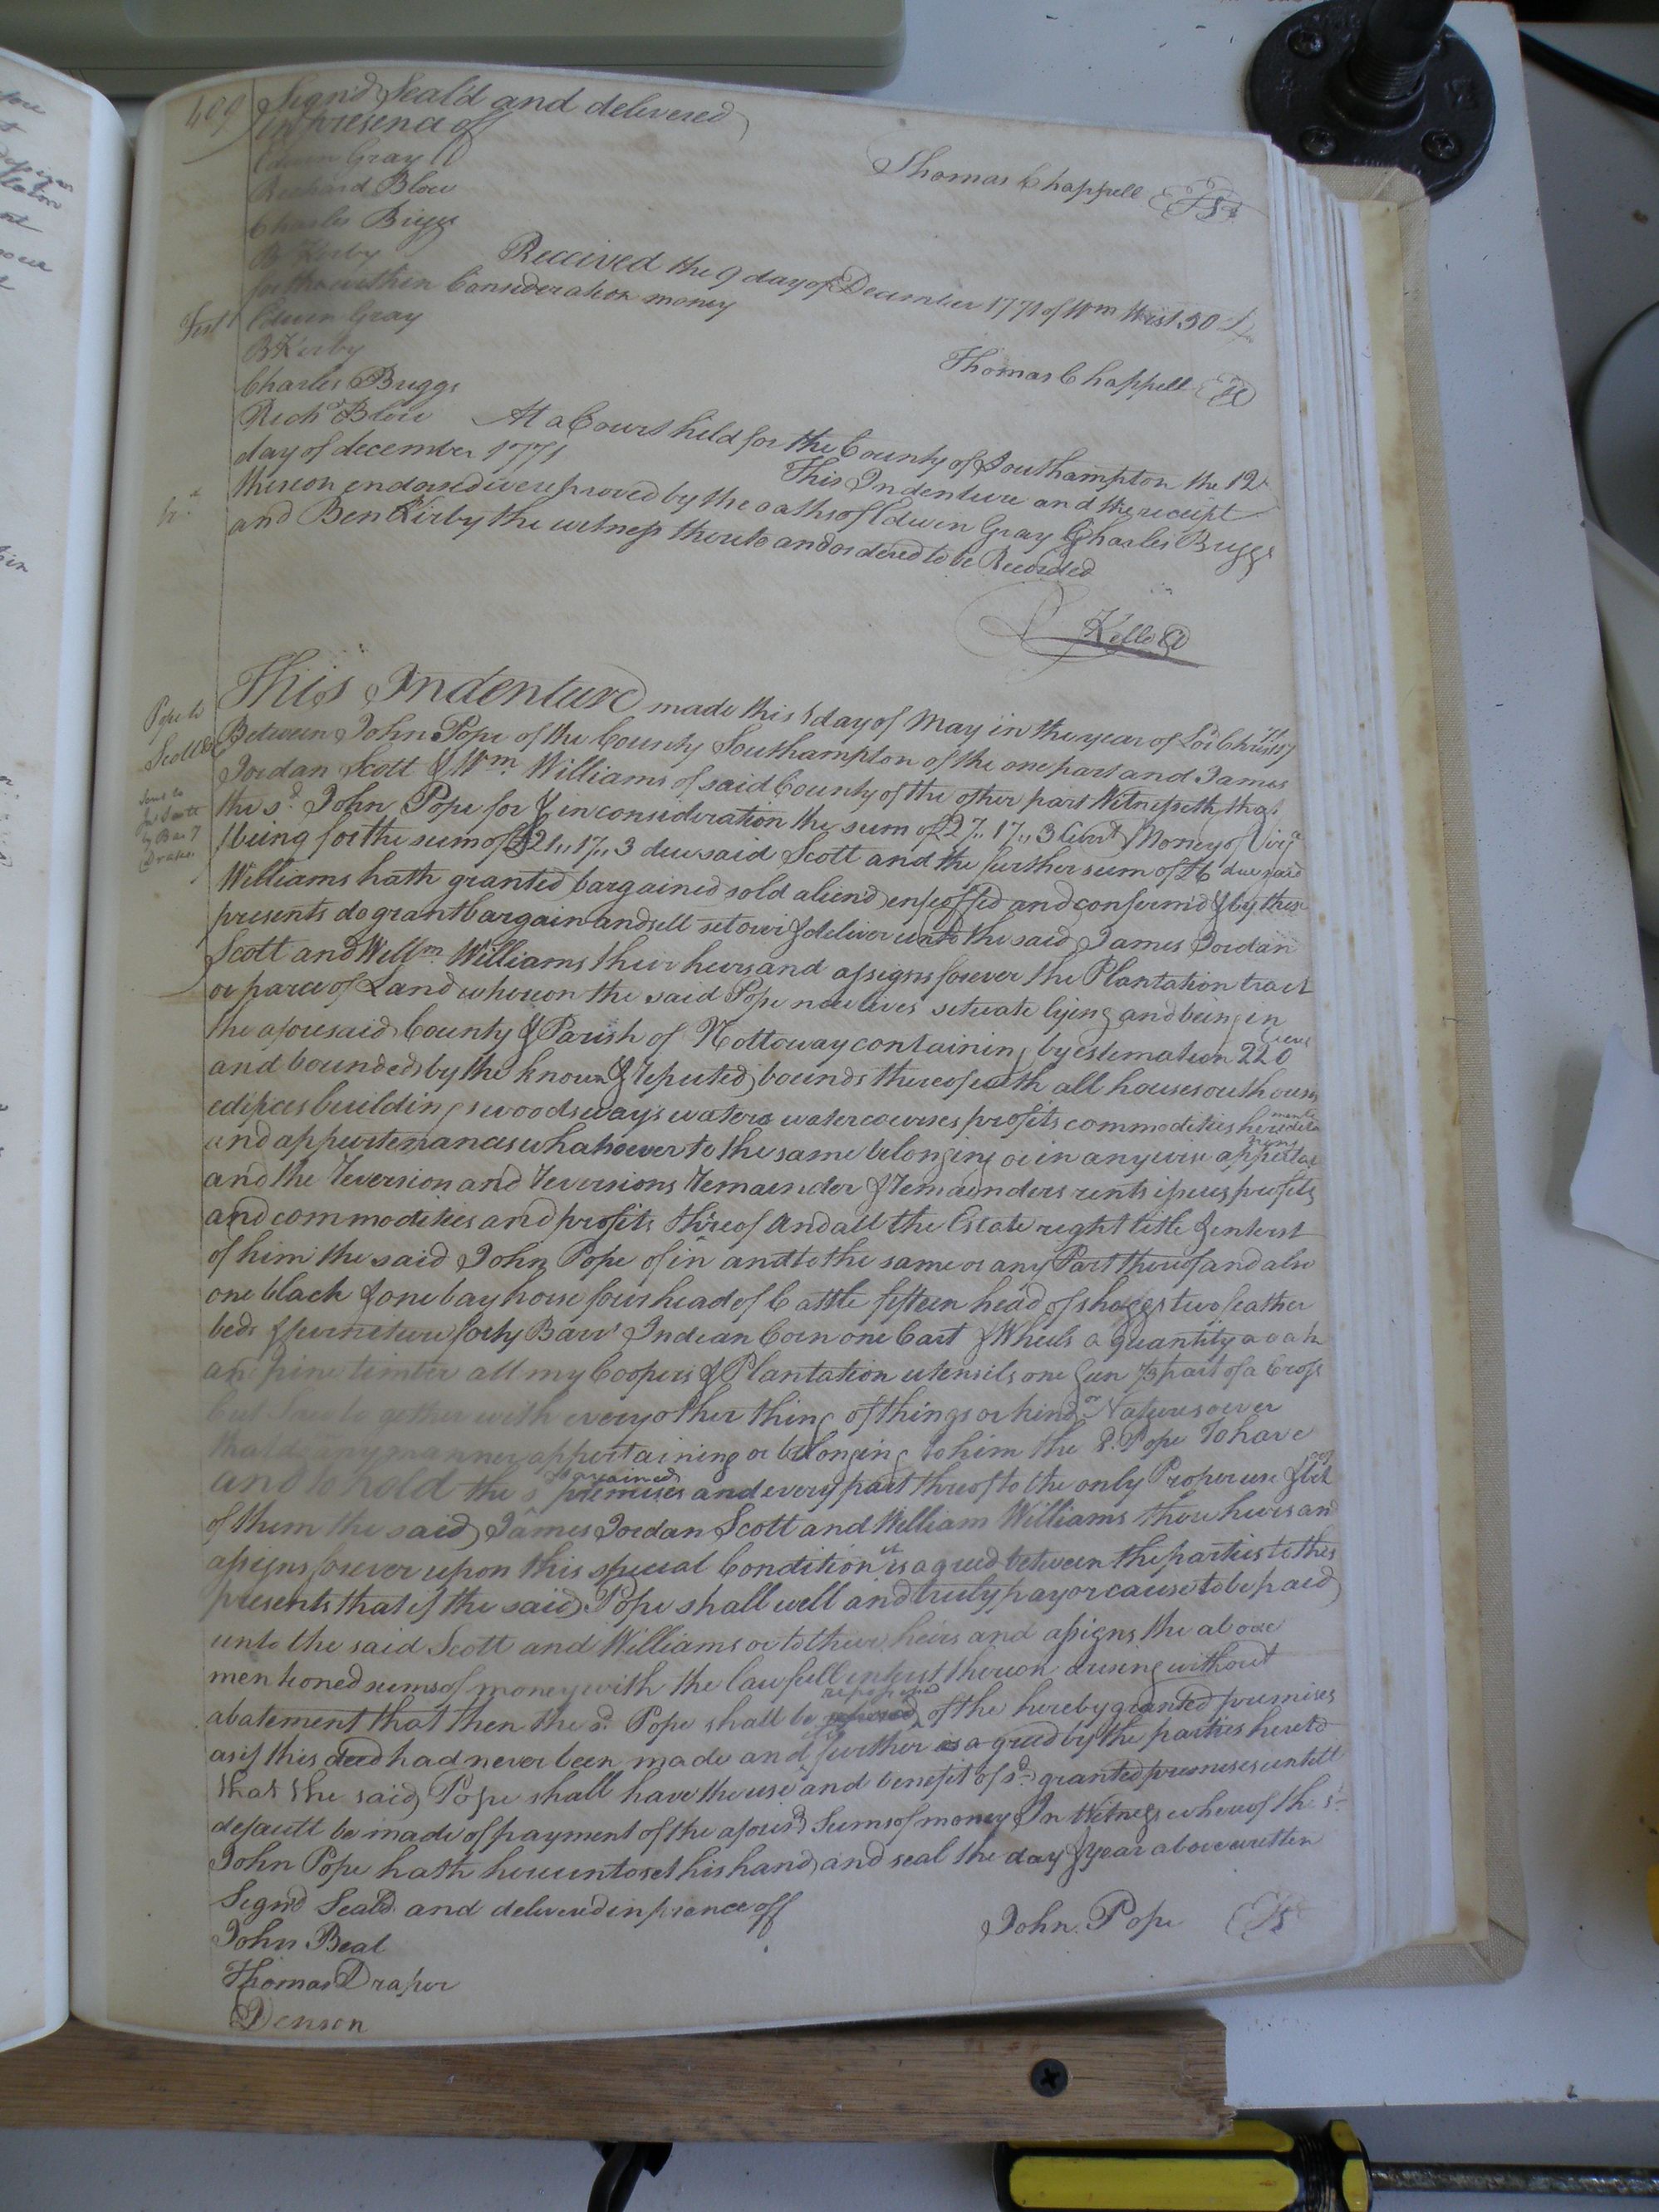 409
Signd Seal'd and delivered
in presence of
Edwin Gray
Thomas Chappell
Richard Blow
Charles Briggs
B Kirby
Received the 9 day of December 1771 of Wm West 50 £
for the within Consideration money
Test
Edwin Gray
B Kirby
Thomas Chappell
Charles Briggs
Richd Blow At a Court held for the County of Southampton the 12
day of december 1771
This Indenture and the receipt
thereon endorsed were proved by the oaths of Edwin Gray Charles Briggs
and Ben Kirby the witness thereto and ordered to be Recorded
Kello
Pope to
Scott &c
This Indenture made this day of May in the year of Lod Christ
Between John Pope of the County Southampton of the one part and James
Jordan Scott & Wm. Williams of said County of the other part Witnesseth that
the sd. John Pope for & in consideration the sum of £27,, 17,, 3 Curt Money of Virga
being for the sum of £21,, 17,, 3 due said Scott and the further sum of £6 due said
Williams hath granted bargained sold aliend enfeoffed and confermd & by these
presents do grant bargain and sell set over & deliver unto the said James Jordan
Scott and Willm. Williams their heirs and assigns forever the Plantation tract
or parce of Land whereon the said Pope now lives situate lying and being in
the aforesaid County & Parish of Nottoway containing by estemation 220 acres
and bounded by the known & reputed bounds thereof with all houses outhouses
edifices buildings woods ways waters watercourses profits commodities heredita
ments
and appurtenances whatsoever to the same belonging or in anywise appertai
ning
and the reversion and reversions remainder & remainders rents issues profits
and commodities and profits thereof and all the Estate right title & interest
of him the said John Pope of in and to the same or any Part thereof and also
one black & one bay horse four head of Cattle fifteen head of shoggs two feather
beds & furneture forty Barrs Indian Corn one Cart & Wheels a quantity a oak
an pine timber all my Coopers & Plantation utensils one gun 1/3 part of a Cross
Cut Saw to gether with every other thing of things or kind or Natures oever
that do any manner appertaining or belonging to him the sd. Pope To have
and to hold the sd bargained premises and every part threof to the only Proper use & behoof
of them the said James Jordan Scott and William Williams their heirs and
assigns forever upon this special Condition it is agreed between the parties to thes
presents that if the said Pope shall well and truly pay or cause to be paid
unto the said Scott and Williams or to their heirs and assigns the above
mentioned sums of money with the lawfull interest thereon arising without
abatement that then the sd. Pope shall be repossessed of the hereby granted premises
as if this deed had never been made and further is agreed by the parties hereto
that the said Pope shall have the use and benefit of sd. granted premises untill
default be made of payment of the aforesd Sums of money In Witness whereof the sd.
John Pope hath hereunto set his hand and seal the day & year above written
Signd Seald and delivered in prence off
John Pope
John Beal
Thomas Draper
Denson